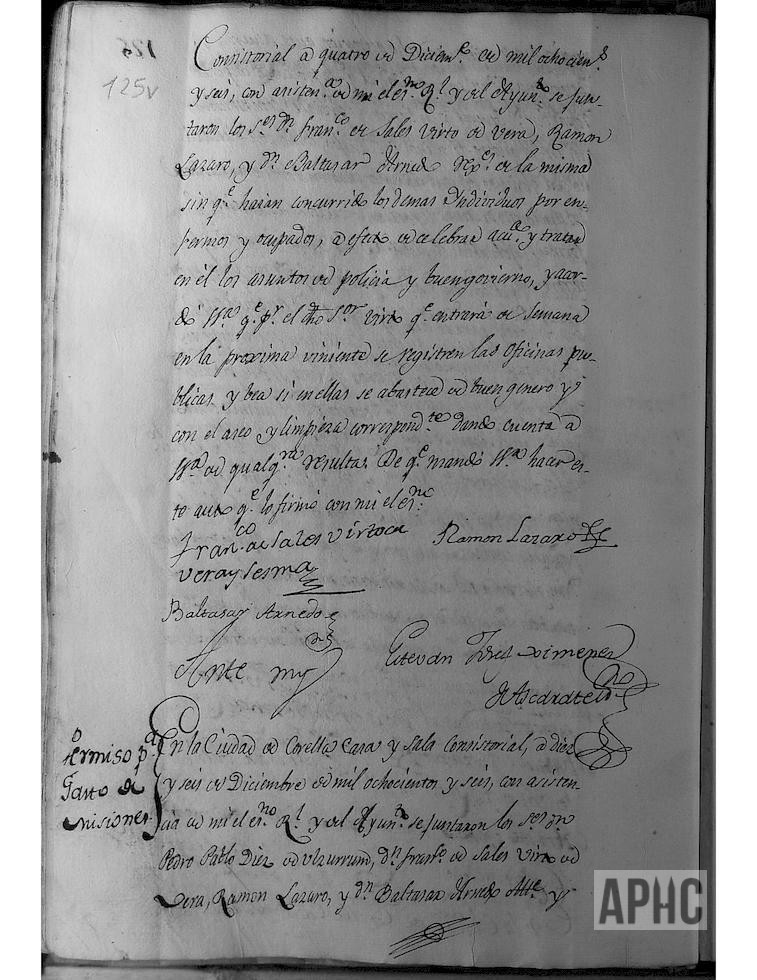 125
125v
Consistorial a quatro de Diciem.e de mil ochocien.s
y seis, con asisten.a de mi el es.no R.l y del Ayun.to se jun-
taron los S.res D.n Fran.co de Sales Virto de Vera, Ramon
Lazaro, y D.n Baltasar Arnedo Rex.s de la misma
sin q.e haian concurrido los demas Individuos por en-
fermos y ocupados, a efecto de celebrar y tratar
en él los asuntos de policia y buen govierno, y acor-
dó S.ria q.e p.r el dho S.or Virto q.e entrará de semana
en la proxima viniente se registren las oficinas pu-
blicas y bea si en ellas se abastece de buen genero y
con el aseo y limpieza correspond.te dando cuenta a
S.ria de qualq.ra resulta. De q.e mandó S.ria hacer es-
to auto q.e lo firmó con mi el es.no
Fran.co de Sales Virto de
Vera y Sesma
Ramon Lazaro
Baltasar Arnedo
Ante my
Estevan Ximenez
de Ascarate
Permiso p.a
Gasto de
misiones
En la Ciudad de Corella Casa y Sala Consistorial, a diez
y seis de Diciembre de mil ochocientos y seis, con asisten-
cia de mi el es.no R.l y del Ayun.to se juntaron los S.res D.n
Pedro Pablo Diez de Ulzurrun, D.n Fran.co de Sales Virto de
Vera, Ramon Lazaro, y D.n Baltasar Arnedo Alc.e y
APHC